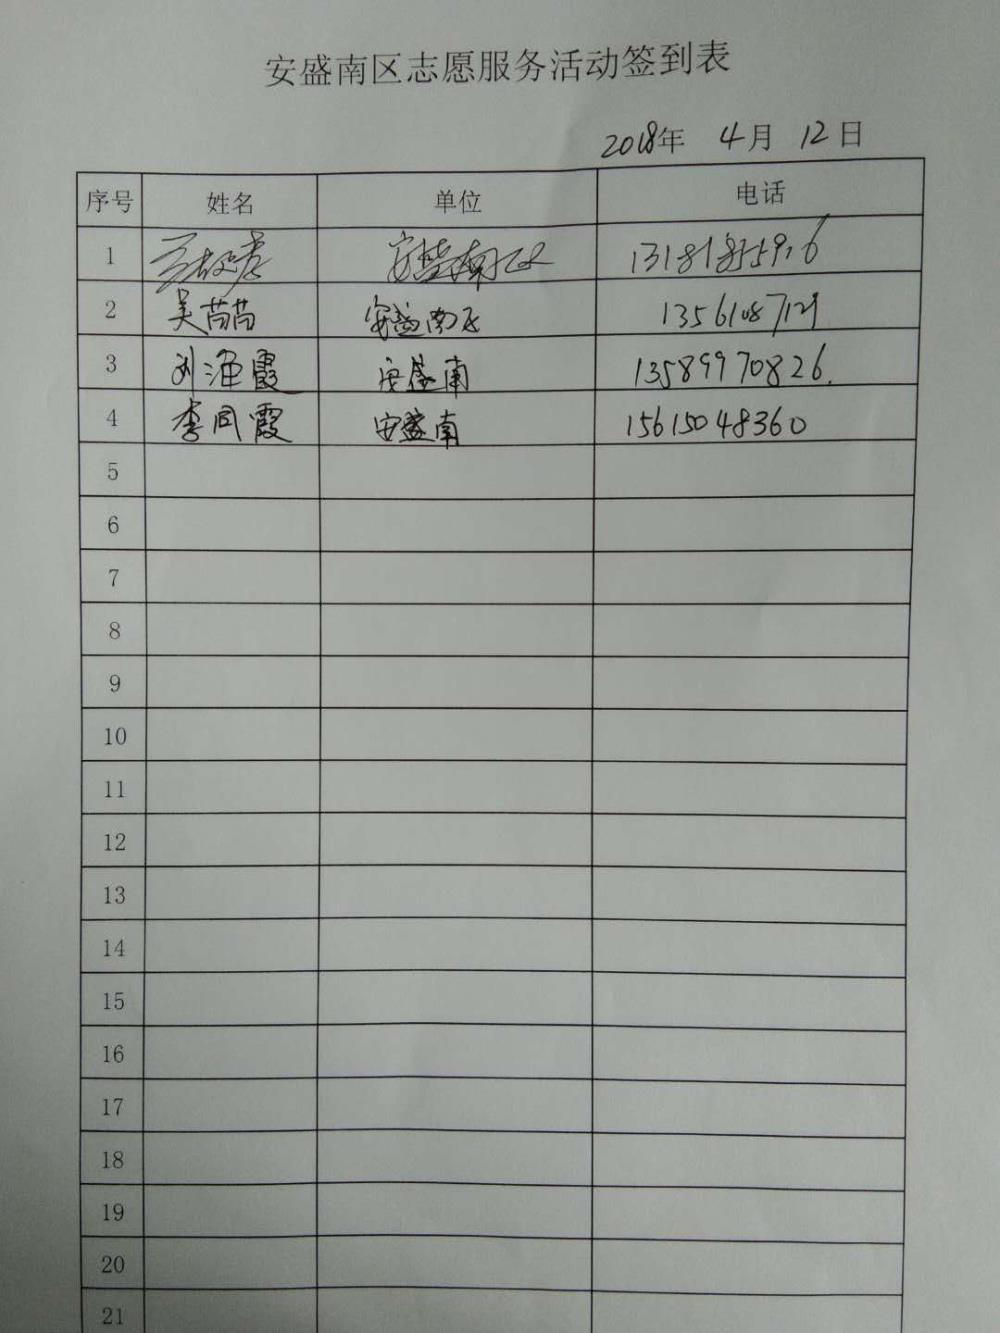 安盛南区志愿服务活动签到表
2018年 4月 12日
序号 姓名 单位 电话
1 安盛南区
2 吴苘苘 安盛南区
3 刘海霞 安盛南 13589970826.
4 李同霞 安盛南 15615048360
5
6
7
8
9
10
11
12
13
14
15
16
17
18
19
20
21